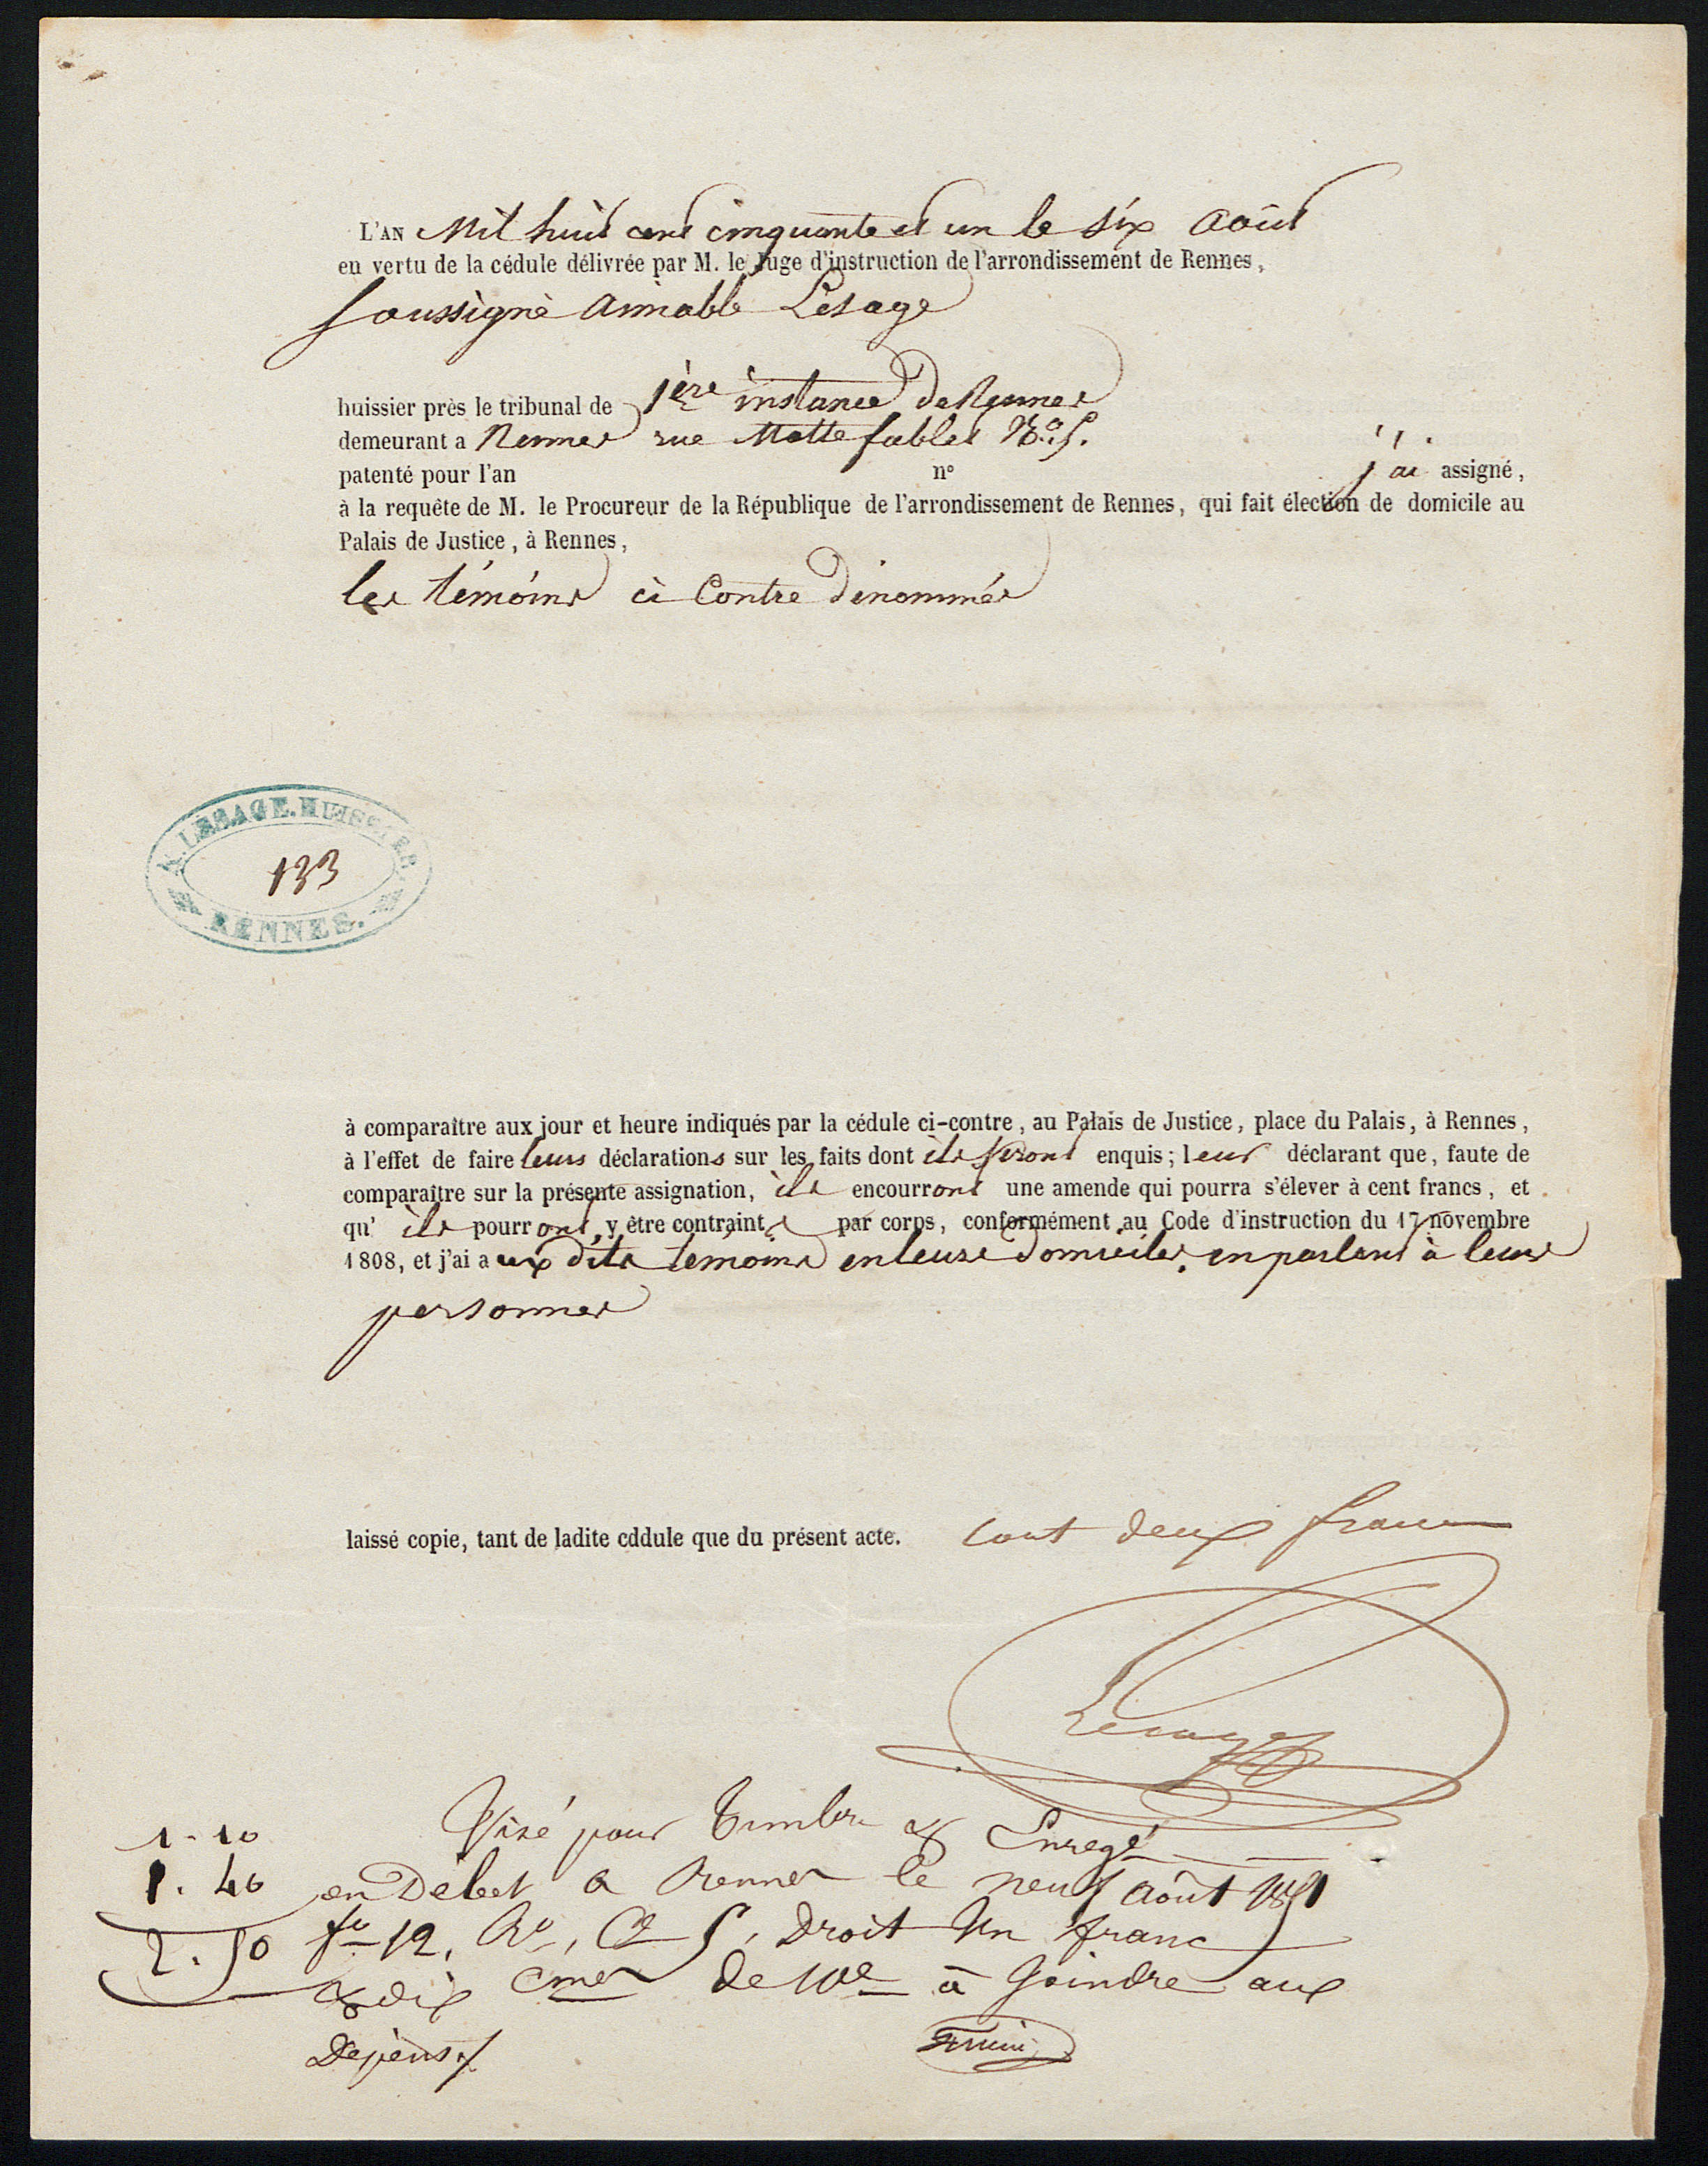 L'AN Mil huit cent cinquante et un le six août
en vertu de la cédule délivrée par M. le Juge d'instruction de l'arrondissement de Rennes,
soussigné Aimable Lesage
huissier près le tribunal de 1ère instance de Rennes
demeurant a Rennes rue Motte fablet No. 5.
patenté pour l'an n° j'ai assigné,
à la requête de M. le Procureur de la République de l'arrondissement de Rennes, qui fait élection de domicile au
Palais de Justice, à Rennes,
les témoins ci Contre dénommés
A. LESAGE. HUISSIER.
133
RENNES.
à comparaître aux jour et heure indiqués par la cédule ci-contre, au Palais de Justice, place du Palais, à Rennes,
à l'effet de faire leurs déclarations sur les faits dont ils seront enquis; leur déclarant que, faute de
comparaître sur la présente assignation, ils encourront une amende qui pourra s'élever à cent francs, et
qu' ils pourront y être contraints par corps, conformément au Code d'instruction du 17 novembre
1808, et j'ai aux dits témoins en leurs domiciles, en parlant à leurs
personnes
laissé copie, tant de ladite cddule que du présent acte. Cout deux francs
Lesage
Visé pour timbre & Enregé
1. 10
1. 40 en Débet a Rennes le neuf août 1851
2. 50 fo 12, Ro, Ce 5, Droit Un franc
& dix cmes de 10e à Joindre aux
Dépens